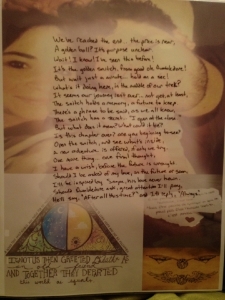 We've reached the end... the prize is near,
A golden ball? It's purpose unclear
Wait! I know! I've seen this before!
It's the golden snitch, from good ole Dumbledore!
But wait just a minute... hold on a sec!
What's it doing here, in the middle of our trek?
It seems our journey isn't over... not yet, at least,
The snitch holds a memory, a future to keep
There's a phrase to be said, as we all know,
The snitch has a secret: "I open at the close"
But what does it mean? What could it be?
Is this chapter over? Are you beginning to see?
Open the snitch, and see what's inside,
A new adventure is offered, if only we try
One more thing... one final thought,
I have a wish, before the future is wrought
Should I be asked of my love, in the future or soon
I'll be inspired by Snape, his love never
Should Dumbledore ask, great attention I'll pay,
He'll say, "After all this time?" and I'll reply, "Always."
AND TOGETHER THEY DEFEATED
the world as equals.